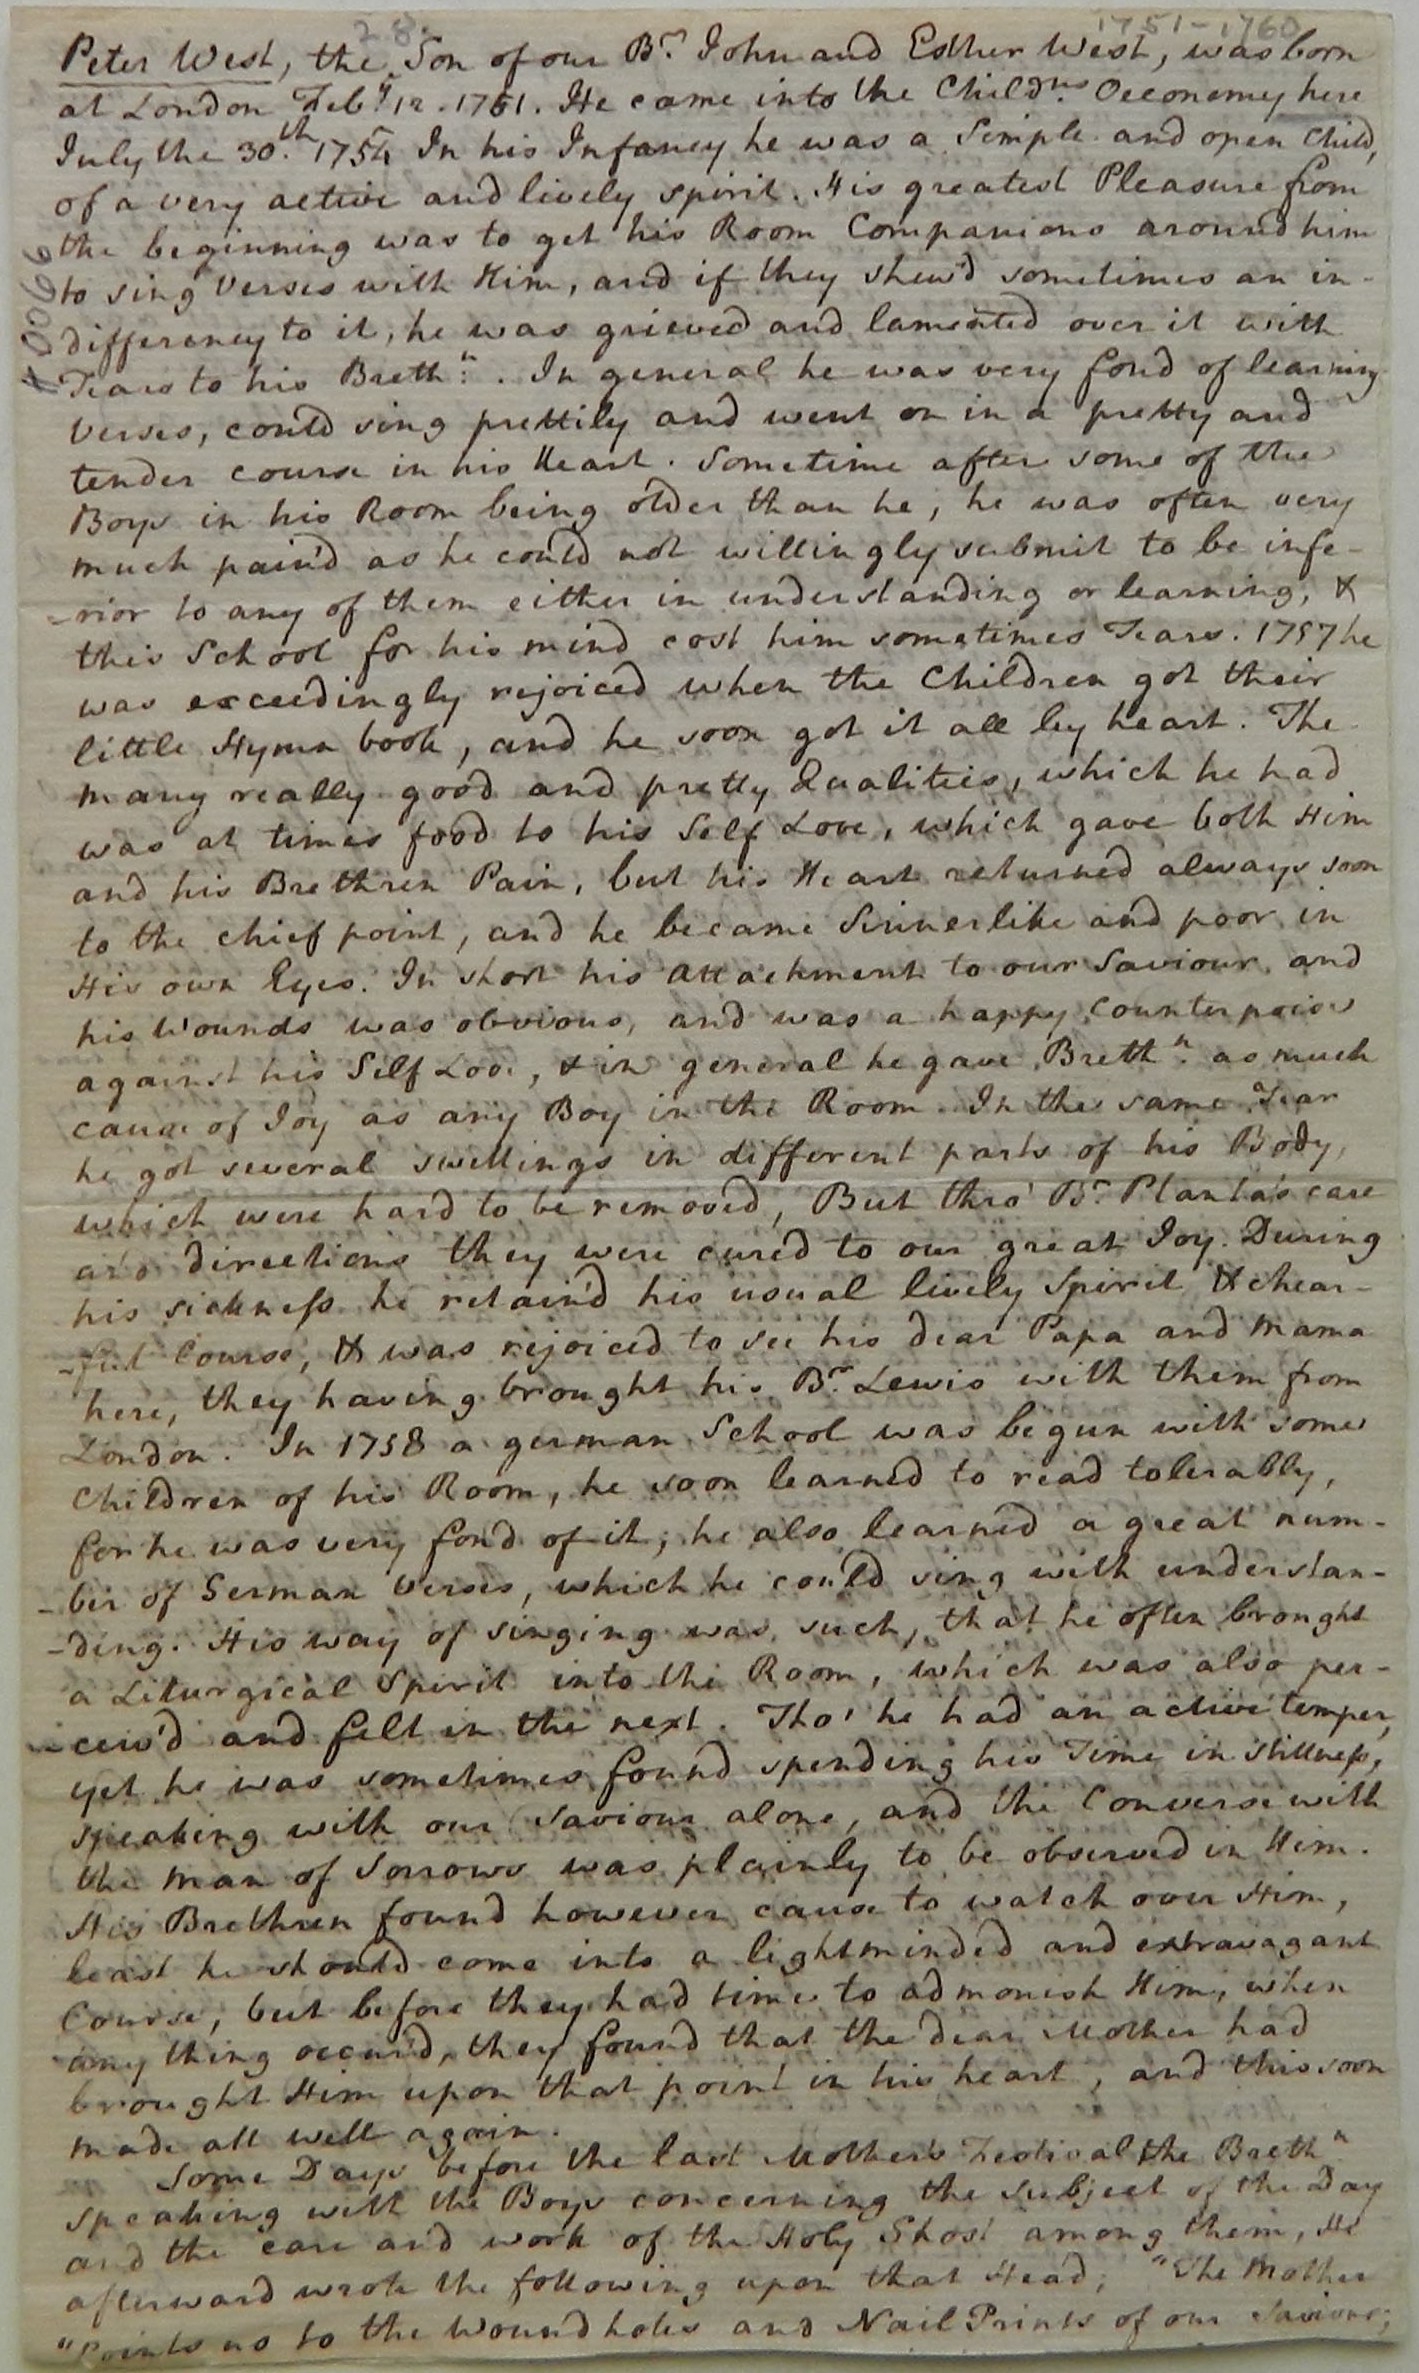 28.
1751-1760
Peter West, the Son of our Br. John and Esther West, was born
at London Feby. 12. 1751. He came into the Childns. Oeconomy here
July the 30.th 1754 In his Infancy he was a Simple and open Child,
of a very active and lively spirit. His greatest Pleasure from
the beginning was to get his Room Companions around him
to sing Verses with Him, and if they shew'd sometimes an in-
differency to it, he was grieved and lamented over it with
Tears to his Brethn:. In general he was very fond of learning
Verses, could sing prettily and went on in a pretty and
tender course in his Heart. Sometime after some of the
Boys in his Room being older than he, he was often very
much pain'd as he could not willingly submit to be infe-
-rior to any of them either in understanding or learning, &
this School for his mind cost him sometimes Tears. 1757 he
was exceedingly rejoiced when the Children got their
little Hymn book, and he soon got it all by heart. The
many really good and pretty Qualities, which he had
was at times food to his Self Love, which gave both Him
and his Brethren Pain, but his Heart returned always soon
to the chief point, and he became Sinnerlike and poor in
His own Eyes. In short his attachment to our Saviour and
his Wounds was obvious, and was a happy Counterpoise
against his Self Love, & in general he gave Brethn. as much
cause of Joy as any Boy in the Room. In the same Year
he got several swellings in different parts of his Body,
which were hard to be removed, But thro' Br. Planta's care
and directions they were cured to our great Joy. During
his sickness he retain'd his usual lively Spirit & chear-
-ful Course, & was rejoiced to see his dear Papa and Mama
here, they having brought his Br. Lewis with them from
London. In 1758 a german School was begun with some
Children of his Room, he soon learned to read tolerably,
for he was very fond of it; he also learned a great num-
-ber of German Verses, which he could sing with understan-
-ding. His way of singing was such, that he often brought
a Liturgical Spirit into the Room, which was also per-
-ceiv'd and felt in the next. Tho' he had an active temper,
yet he was sometimes found spending his Time in stillness,
speaking with our Saviour alone, and the Converse with
the Man of Sorrows was plainly to be observed in Him.
His Brethren found however cause to watch over Him,
least he should come into a lightminded and extravagant
Course, but before they had time to admonish Him, when
any thing occur'd, they found that the dear Mother had
brought Him upon that point in his heart, and this soon
made all well again.
Some Days before the last Mothers Festival the Brethn
speaking with the Boys concerning the subject of the Day
and the care and work of the Holy Ghost among them, He
afterward wrote the following upon that Head; "The Mother
"Points us to the Wound holes and Nail Prints of our Saviour;